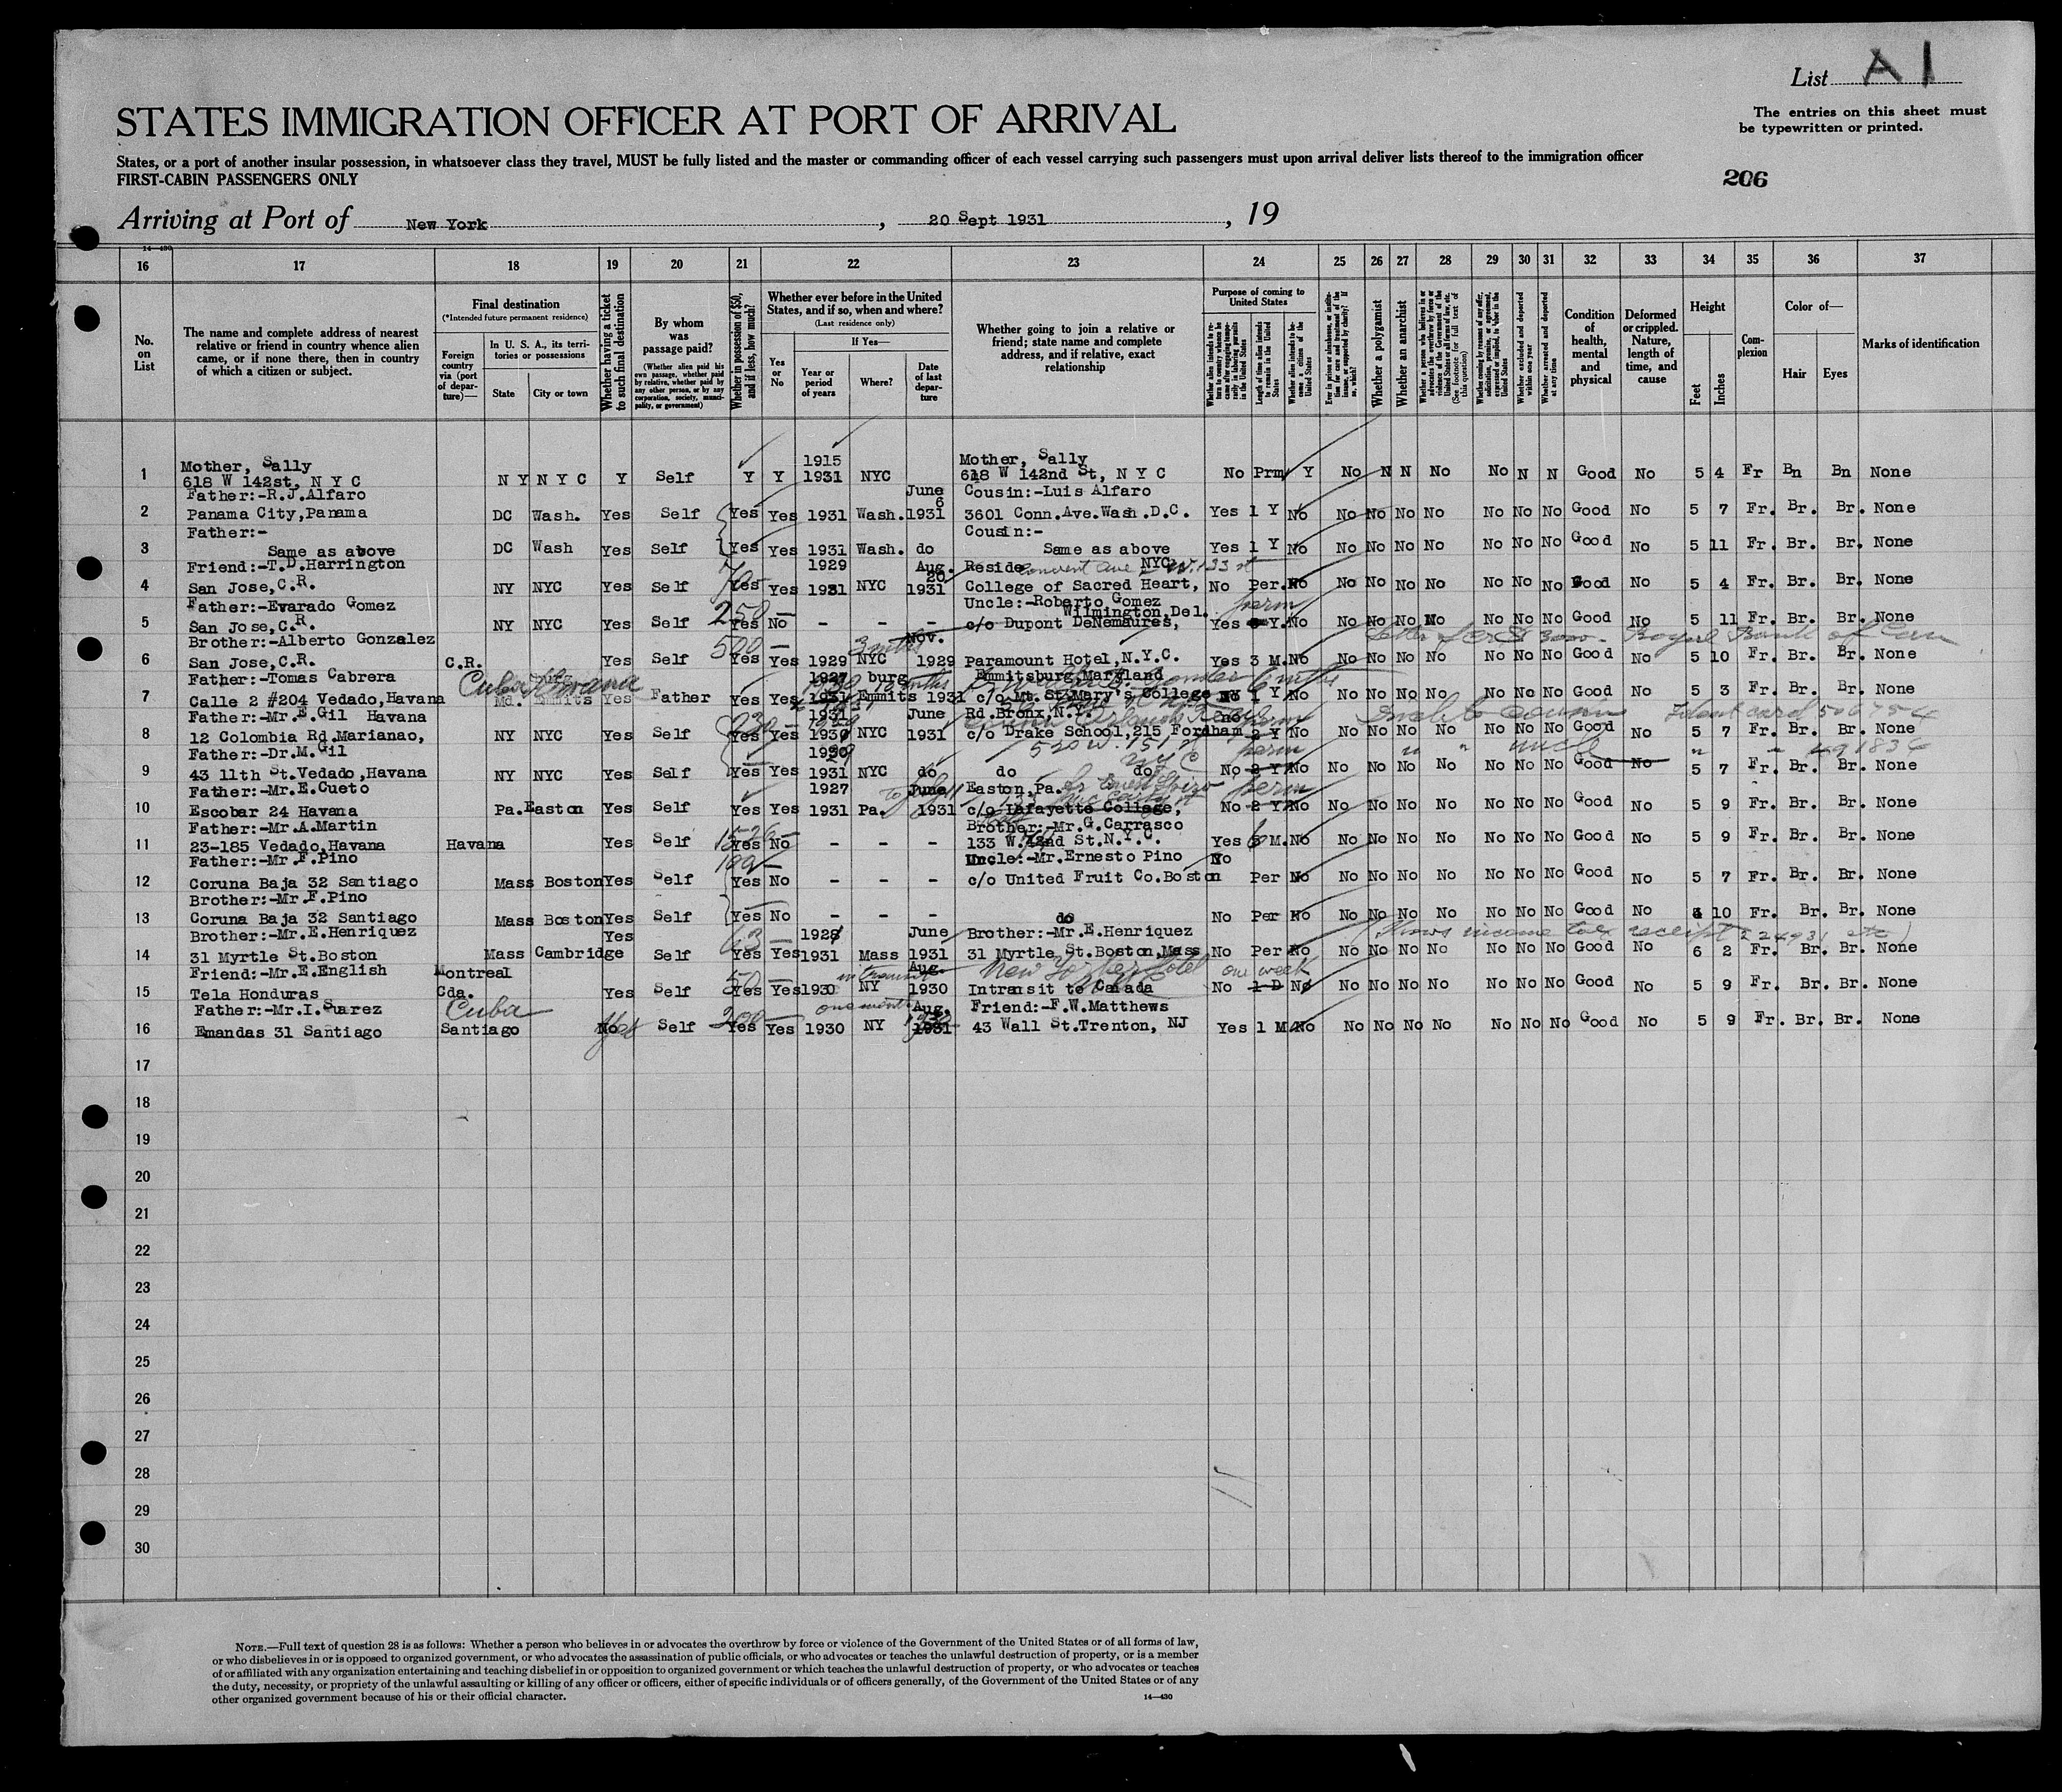 List A1
The entries on this sheet must
be typewritten or printed.
STATES IMMIGRATION OFFICER AT PORT OF ARRIVAL
States, or a port of another insular possession, in whatsoever class they travel, MUST be fully listed and the master or commanding officer of each vessel carrying such passengers must upon arrival deliver lists thereof to the immigration officer
FIRST-CABIN PASSENGERS ONLY
206
Arriving at Port of New York, 20 Sept 1931, 19
14—430
16 17 18 19 20 21 22 23 24 25 26 27 28 29 30 31 32 33 34 35 36 37
No. on List
The name and complete address of nearest relative or friend in country whence alien came, or if none there, then in country of which a citizen or subject.
Final destination
(*Intended future permanent residence)
Foreign country via (port of departure)—
In U. S. A., its territories or possessions
State City or town
Whether having a ticket to such final destination
By whom was passage paid?
(Whether alien paid his own passage, whether paid by relative, whether paid by any other person, or by any corporation, society, municipality, or government)
Whether in possession of $50, and if less, how much?
Whether ever before in the United States, and if so, when and where?
(Last residence only)
Yes or No
If Yes—
Year or period of years
Where?
Date of last departure
Whether going to join a relative or friend; state name and complete address, and if relative, exact relationship
Purpose of coming to United States
Length of time alien intends to remain in the United States
Whether alien intends to become a citizen of the United States
Whether a polygamist
Whether an anarchist
Whether excluded and deported within one year
Whether arrested and deported at any time
Condition of health, mental and physical
Deformed or crippled. Nature, length of time, and cause
Height
Feet Inches
Complexion
Color of—
Hair Eyes
Marks of identification
Mother, Sally 1915 Mother, Sally
1 618 W 142st, N Y C N Y N Y C Y Self Y Y 1931 NYC 618 W 142nd St, N Y C No Prm Y No N N No No N N Good No 5 4 Fr Bn Bn None
Father:-R.J.Alfaro June 6 Cousin:-Luis Alfaro
2 Panama City,Panama DC Wash. Yes Self Yes Yes 1931 Wash. 1931 3601 Conn.Ave.Wash.D.C. Yes 1 Y No No No No No No No No Good No 5 7 Fr. Br. Br. None
Father:- Cousin:-
3 Same as above DC Wash Yes Self Yes Yes 1931 Wash. do Same as above Yes 1 Y No No No No No No No No Good No 5 11 Fr. Br. Br. None
Friend:-T.D.Harrington 1929 Aug. 20 Reside Convent Ave NYC W.133 st
4 San Jose,C.R. NY NYC Yes Self Yes Yes 1931 NYC 1931 College of Sacred Heart, No Per. No No No No No No No No Good No 5 4 Fr. Br. Br. None
Father:-Evarado Gomez 250 Uncle:-Roberto Gomez Wilmington Del. perm
5 San Jose,C.R. NY NYC Yes Self Yes No - - - c/o Dupont DeNemaures, Yes Y. No No No No No No No No Good No 5 11 Fr. Br. Br. None
Brother:-Alberto Gonzalez 500 3 mths Nov. 3000- Royal Bank of Can
6 San Jose,C.R. C.R. Yes Self Yes Yes 1929 NYC 1929 Paramount Hotel,N.Y.C. Yes 3 M. No No No No No No No No Good No 5 10 Fr. Br. Br. None
Father:-Tomas Cabrera Cuba Havana 1927 burg Emmitsburg,Maryland 6 mths
7 Calle 2 #204 Vedado,Havana Md. Emmits Yes Father Yes Yes 1931 Emmits 1931 c/o Mt. St.Mary's College No 1 Y No No No No No No No No Good No 5 3 Fr. Br. Br. None
Father:-Mr.E.Gil Havana 1931 June Rd.Bronx,N.Y. no perm
8 12 Colombia Rd.Marianao, NY NYC Yes Self Yes Yes 1930 NYC 1931 c/o Drake School,215 Fordham 2 Y No No No No No No No No Good No 5 7 Fr. Br. Br. None
Father:-Dr.M.Gil 520 W. 151 st NYC perm uncle
9 43 11th St.Vedado,Havana NY NYC Yes Self Yes Yes 1931 NYC do do do No 2 Y No No No No No No No No Good No 5 7 Fr. Br. Br. None
Father:-Mr.E.Cueto 1927 June Easton,Pa. perm
10 Escobar 24 Havana Pa. Easton Yes Self Yes Yes 1931 Pa. 1931 c/o Lafayette College, No 2 Y No No No No No No No No Good No 5 9 Fr. Br. Br. None
Father:-Mr.A.Martin Brother:-Mr.G.Carrasco
11 23-185 Vedado,Havana Havana Yes Self Yes No - - - 133 W.42nd St.N.Y.C. Yes 6 M. No No No No No No No No Good No 5 9 Fr. Br. Br. None
Father:-Mr.F.Pino Uncle:-Mr.Ernesto Pino No
12 Coruna Baja 32 Santiago Mass Boston Yes Self Yes No - - - c/o United Fruit Co.Boston Per No No No No No No No No Good No 5 7 Fr. Br. Br. None
Brother:-Mr.F.Pino
13 Coruna Baja 32 Santiago Mass Boston Yes Self Yes No - - - do No Per No No No No No No No No Good No 10 Fr. Br. Br. None
Brother:-Mr.E.Henriquez Yes 63 June Brother:-Mr.E.Henriquez (Shows income tax receipt
14 31 Myrtle St.Boston Mass Cambridge Self Yes Yes 1931 Mass 1931 31 Myrtle St.Boston,Mass No Per No No No No No No No No Good No 6 2 Fr. Br. Br. None
Friend:-Mr.E.English Montreal 50 in transit Aug. New Yorker Hotel one week
15 Tela Honduras Cda. Yes Self Yes Yes 1930 NY 1930 Intransit to Canada No 1 D No No No No No No No No Good No 5 9 Fr. Br. Br. None
Father:-Mr.I.Suarez Cuba 200 one month Aug. Friend:-F.W.Matthews
16 Emandas 31 Santiago Santiago No Yes Self Yes Yes 1930 NY 1931 43 Wall St.Trenton, NJ Yes 1 M No No No No No No No No Good No 5 9 Fr. Br. Br. None
17
18
19
20
21
22
23
24
25
26
27
28
29
30
NOTE.—Full text of question 28 is as follows: Whether a person who believes in or advocates the overthrow by force or violence of the Government of the United States or of all forms of law,
or who disbelieves in or is opposed to organized government, or who advocates the assassination of public officials, or who advocates or teaches the unlawful destruction of property, or is a member
of or affiliated with any organization entertaining and teaching disbelief in or opposition to organized government or which teaches the unlawful destruction of property, or who advocates or teaches
the duty, necessity, or propriety of the unlawful assaulting or killing of any officer or officers, either of specific individuals or of officers generally, of the Government of the United States or of any
other organized government because of his or their official character.
14—430